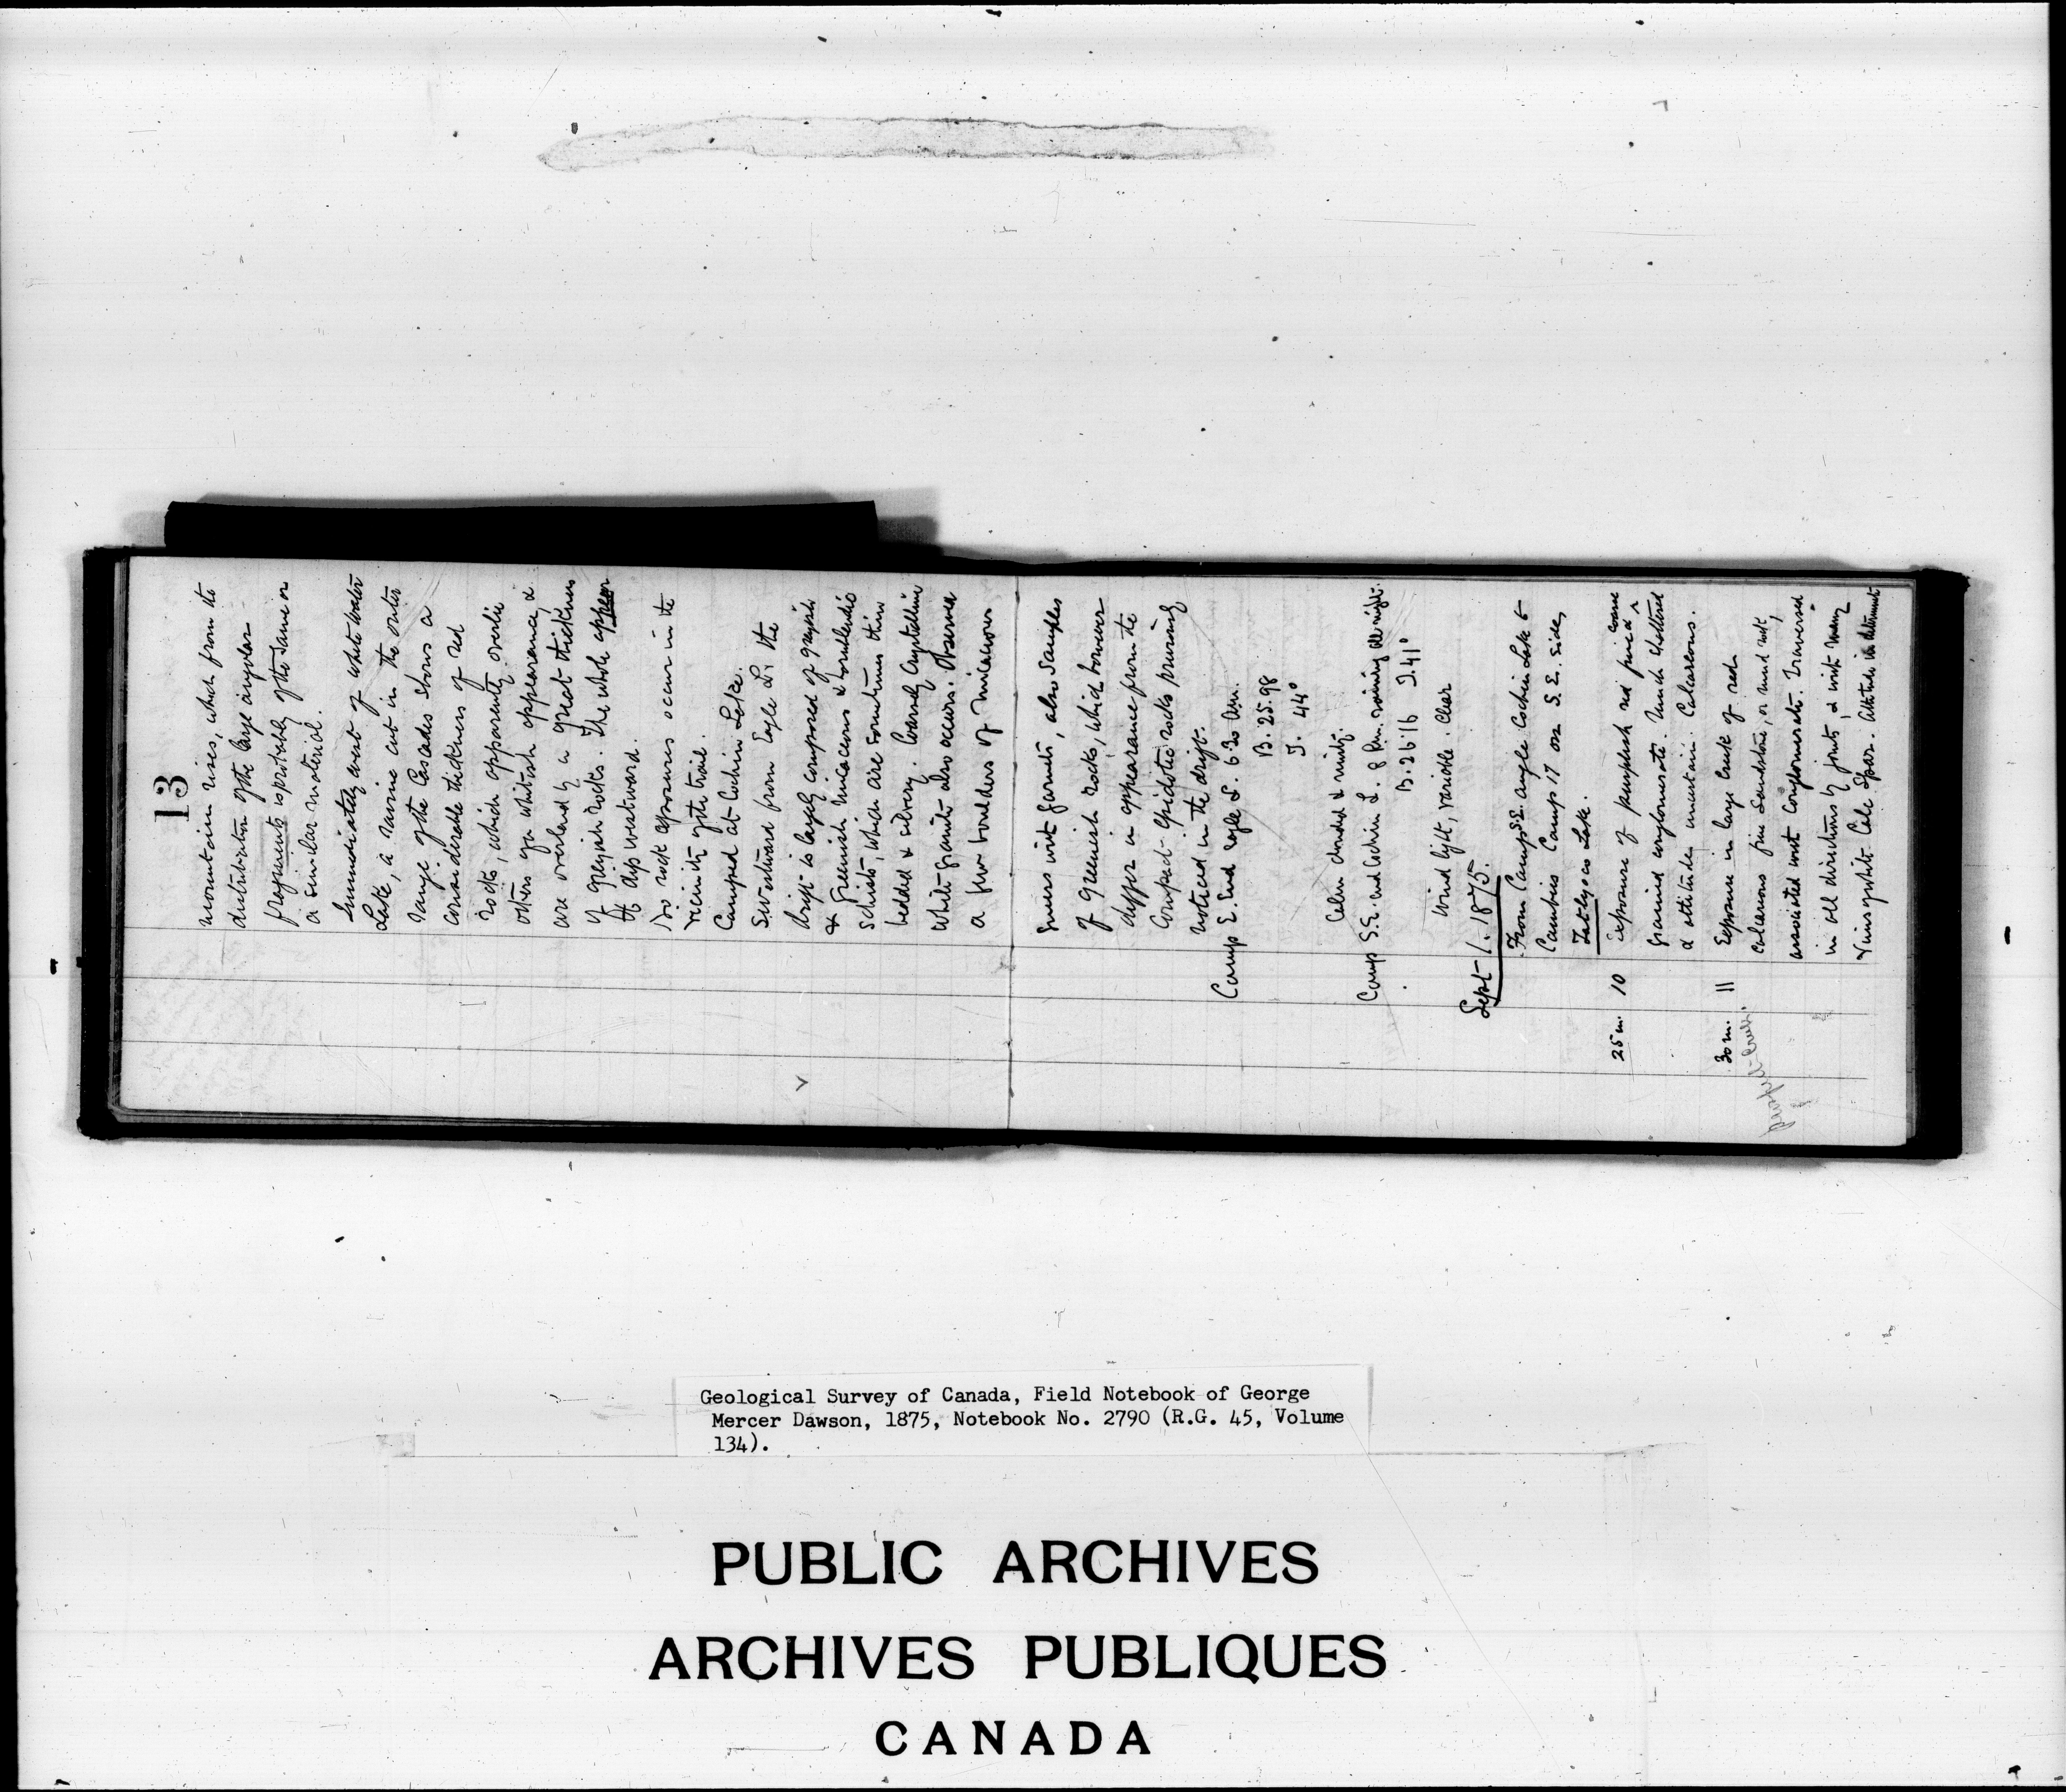 13
mountain rises, which from the
distribution of the large angular
fragments is probably of the same or
a similar material.
Immediately west of White Water
Lake, a ravine cut in the outer
range of the Cascades shows a
considerable thickness of red
rocks, which apparently overlie
others of a whitish appearance, &
are overlaid by a great thickness
of greyish rocks. The whole appear
to dip westward.
No rock exposures occur in the
vicinity of the trail.
Camped at Cochin Lake.
Swestward from Eagle L. the
drift is largely composed of greyish
& greenish micaceous & hornblendic
schists, which are sometimes thin
bedded & silvery. Coarsely crystalline
white granite also occurs. Observed
a few boulders of micaceous
gneiss with garnets, also samples
of greenish rocks, which however
differ in appearance from the
compact epidotic rocks previously
noticed in the drift.
Camp E. End Eagle L. 6.30 am.
B. 25.98
T. 44°
Calm clouded & misty.
Camp S.E. end Cochin L. 8 P.m. raining all night.
B. 26.16 T. 41°
Wind light, variable. Clear
Sept 1. 1875.
From Camp S.E. angle Cochin Lake to
Cambies Camp 17 on S. E. side,
Tatlayoco Lake.
25 m. 10 Exposure of purplish red fine & coarse
grained conglomerate. Much shattered
& attitude uncertain. Calcareous.
30 m. 11 Exposure in large creek of red
calcareous fine sandstone, or mud rock,
associated with conglomerate. Traversed
in all directions by joints, & with many
veins of white Calc Spar. Attitude indeterminate
Geological Survey of Canada, Field Notebook of George
Mercer Dawson, 1875, Notebook No. 2790 (R.G. 45, Volume
134).
PUBLIC ARCHIVES
ARCHIVES PUBLIQUES
CANADA